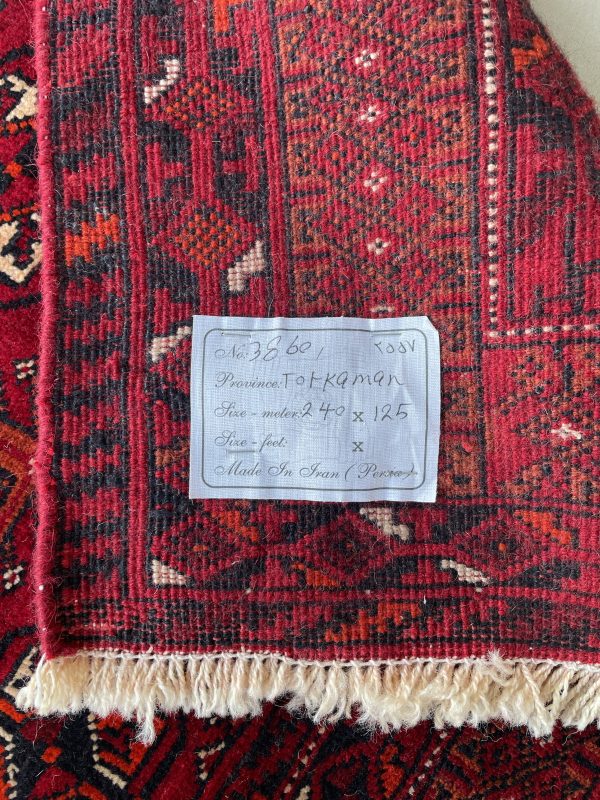 No: 38601 ۲۵۵۷
Province: Torkaman
Size - meter: 240 x 125
Size - feet: x
Made In Iran ( Persia )